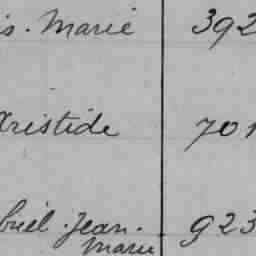 is. Marie 392
Aristide 701
briel. Jean.
Marie 923